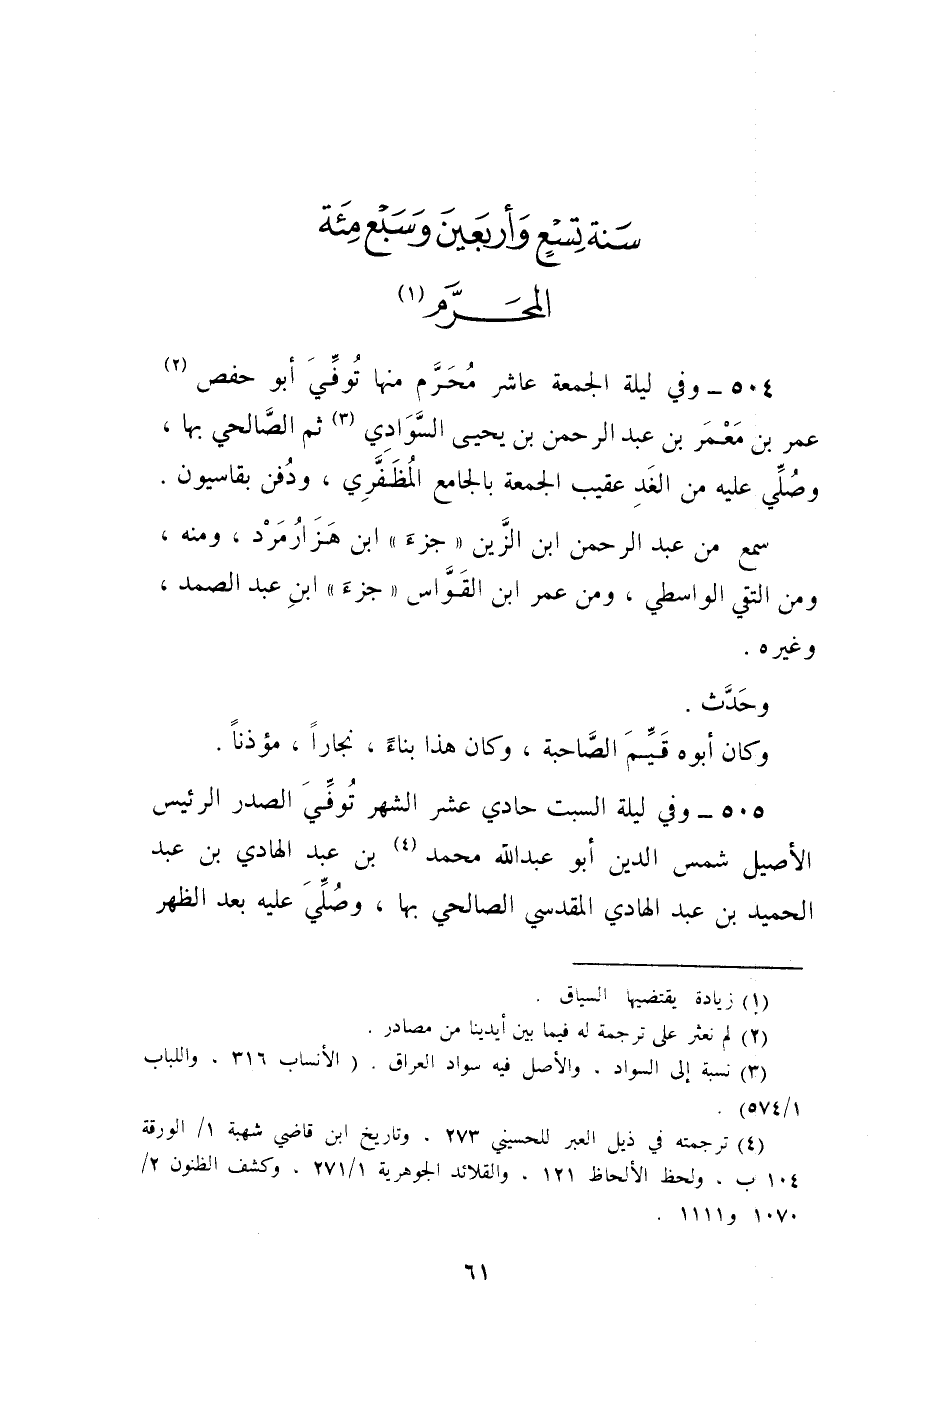 سَنة تِسْعٍ وَأربَعينَ وَسَبْع مِئَة
المحَرَّم (١)
٥٠٤ ـ وفي ليلة الجمعة عاشر مُحَرَّم منها تُوفِّيَ أبو حفص (٢)
عمر بن مَعْمَر بن عبد الرحمن بن يحيى السَّوَادِي (٣) ثم الصَّالحي بها ،
وصُلِّي عليه من الغَدِ عقيب الجمعة بالجامع المُظَفَّرِي ، ودُفن بقاسيون .
سمع من عبد الرحمن ابن الزَّين « جزءَ » ابن هَزَارْمَرْد ، ومنه ،
ومن التقي الواسطي ، ومن عمر ابن القَوَّاس « جزءَ » ابنِ عبد الصمد ،
وغيره .
وحَدَّث .
وكان أبوه قَيِّمَ الصَّاحبة ، وكان هذا بناءً ، نجاراً ، مؤذناً .
٥٠٥ ـ وفي ليلة السبت حادي عشر الشهر تُوفِّيَ الصدر الرئيس
الأصيل شمس الدين أبو عبدالله محمد (٤) بن عبد الهادي بن عبد
الحميد بن عبد الهادي المقدسي الصالحي بها ، وصُلِّيَ عليه بعد الظهر
(١) زيادة يقتضيها السياق .
(٢) لم نعثر على ترجمة له فيما بين أيدينا من مصادر .
(٣) نسبة إلى السواد . والأصل فيه سواد العراق . ( الأنساب ٣١٦ . واللباب
٥٧٤/١) .
(٤) ترجمته في ذيل العبر للحسيني ٢٧٣ . وتاريخ ابن قاضي شهبة ١/ الورقة
١٠٤ ب . ولحظ الألحاظ ١٢١ . والقلائد الجوهرية ٢٧١/١ . وكشف الظنون ٢/
١٠٧٠ و١١١١ .
٦١